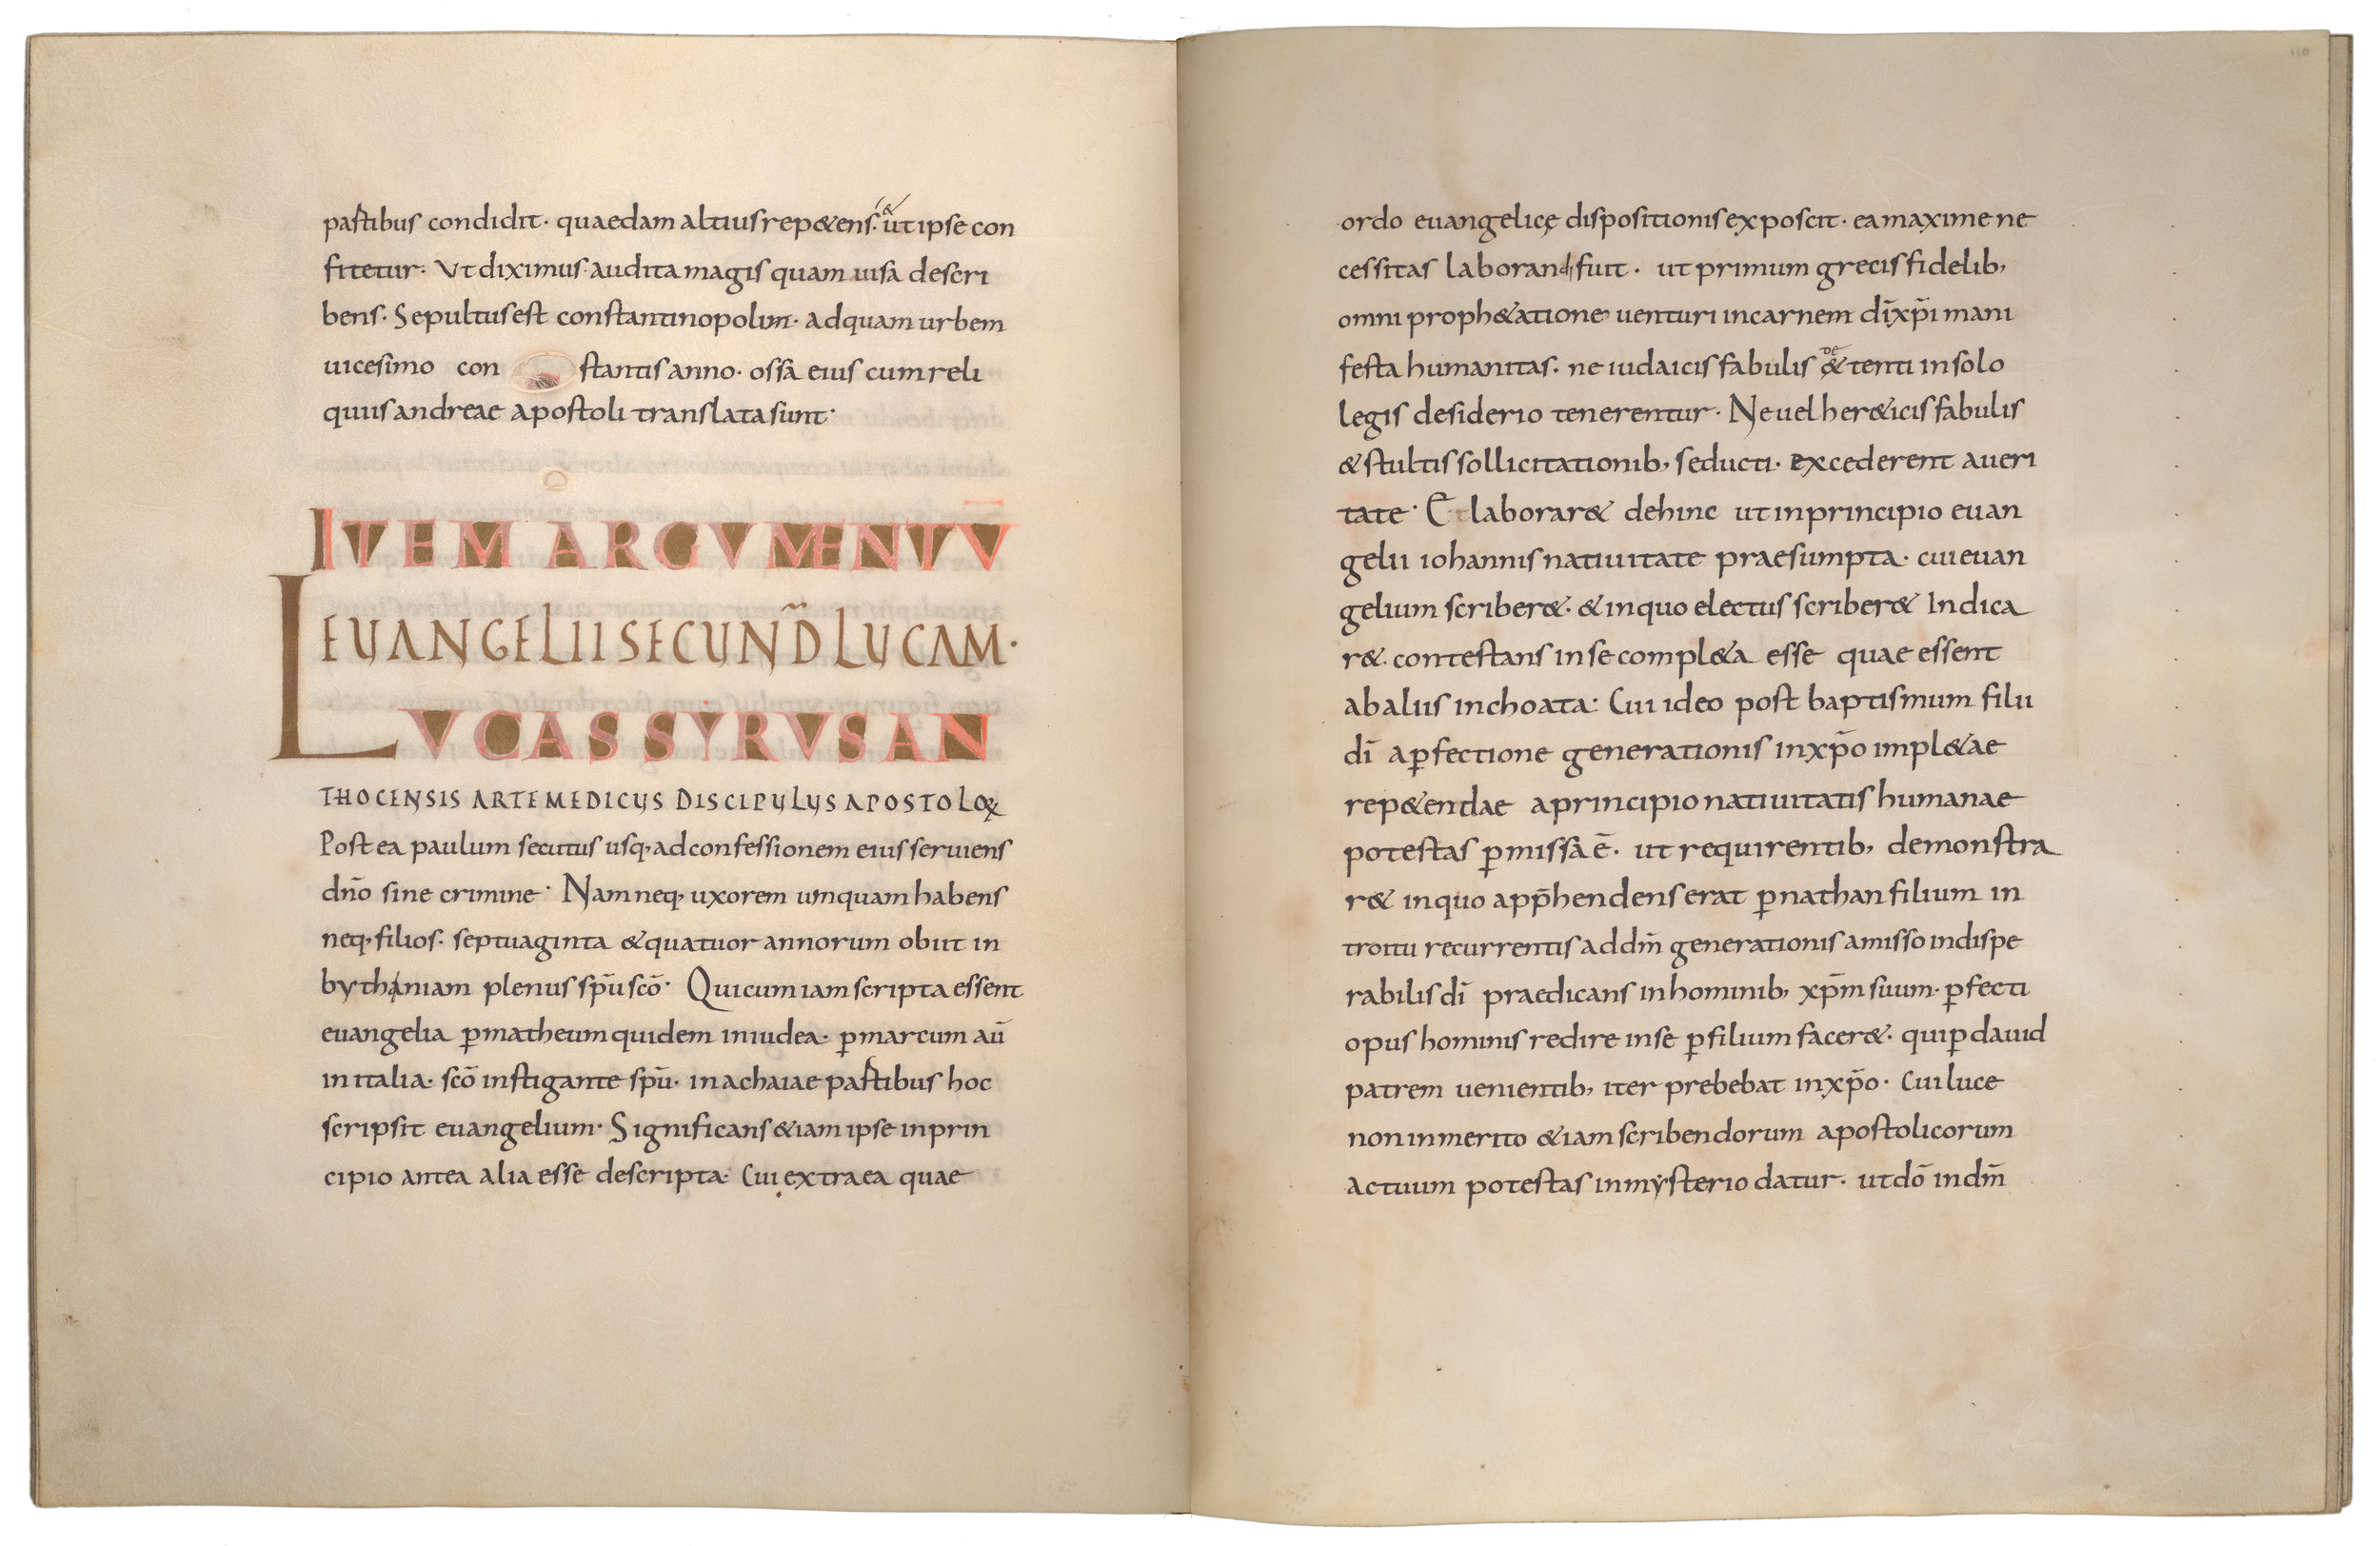 partibus condidit· quaedam altius rep&ens· & ut ipse con
fitetur· Ut diximus· audita magis quam uisa descri
bens· Sepultus est constantinopolim· ad quam urbem
uicesimo con stantis anno· ossa eius cum reli
quiis andreae apostoli translata sunt·
ITEM ARGVMENTV̄
EUANGELII SECUND̃ LUCAM·
LVCAS SYRVS AN
THOCENSIS ARTE MEDICUS DISCIPULUS APOSTOLOꝝ
Postea paulum secutus usq; ad confessionem eius seruiens
dn̄o sine crimine· Nam neq; uxorem umquam habens
neq; filios· septuaginta & quatuor annorum obiit in
bythaniam plenus sp̄u sc̄o· Qui cum iam scripta essent
euangelia ꝑ matheum quidem in iudea· ꝑ marcum aū
in italia· sc̄o instigante sp̄u· in achaiae partibus hoc
scripsit euangelium· Significans &iam ipse in prin
cipio antea alia esse descripta· Cui extra ea quae
110
ordo euangelicę dispositionis exposcit· ea maxime ne
cessitas laborandi fuit· ut primum grecis fidelib;
omni proph&atione uenturi in carnem dī xp̄i mani
festa humanitas· ne iudaicis fabulis &tenti in solo
de
legis desiderio tenerentur· Ne uel her&icis fabulis
& stultis sollicitationib; seducti· excederent a ueri
tate· Et laborar& dehinc ut in principio euan
gelii iohannis natiuitate praesumpta· cui euan
gelium scriber&· & in quo electus scriber& Indica
r&· contestans in se compl&a esse quae essent
ab aliis inchoata· Cui ideo post baptismum filii
dī a ꝑfectione generationis in xp̄o impl&ae
rep&endae a principio natiuitatis humanae
potestas ꝑmissa ē· ut requirentib; demonstra
r& in quo app̄hendens erat ꝑ nathan filium in
troitu recurrentis ad dm̄ generationis amisso indispe
rabilis dī praedicans in hominib; xp̄m suum· ꝑfecti
opus hominis redire in se ꝑ filium facer&· qui ꝑ dauid
patrem uenientib; iter prebebat in xp̄o· Cui luce
non inmerito &iam scribendorum apostolicorum
actuum potestas in mysterio datur· ut dō in dm̄